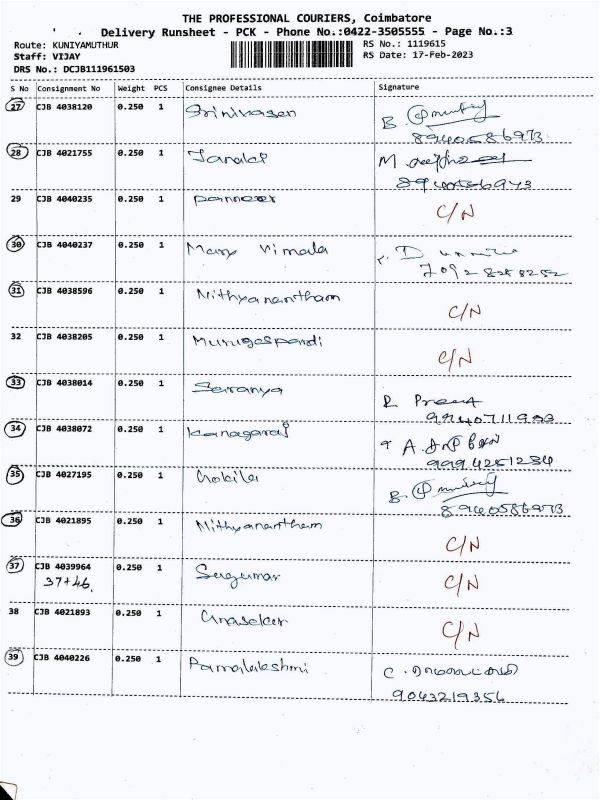 THE PROFESSIONAL COURIERS, Coimbatore
Delivery Runsheet - PCK - Phone No.:0422-3505555 - Page No.:3
Route: KUNIYAMUTHUR RS No.: 1119615
Staff: VIJAY RS Date: 17-Feb-2023
DRS No.: DCJB111961503
S No Consignment No Weight PCS Consignee Details Signature
27 CJB 4038120 0.250 1 Srinivasan B.
8940586973
28 CJB 4021755 0.250 1 M
29 CJB 4040235 0.250 1 panneer C/N
30 CJB 4040237 0.250 1 Mary Vimala
7092828252
31 CJB 4038596 0.250 1 Nithyanantham C/N
32 CJB 4038205 0.250 1 Murugaspandi C/N
33 CJB 4038014 0.250 1 Saranya R
34 CJB 4038072 0.250 1 kanagaraj A.
9994251234
35 CJB 4027195 0.250 1 B.
8940586973
36 CJB 4021895 0.250 1 Nithyanantham C/N
37 CJB 4039964 0.250 1 Sugumar C/N
37+46.
38 CJB 4021893 0.250 1 C/N
39 CJB 4040226 0.250 1 C.
9043219354